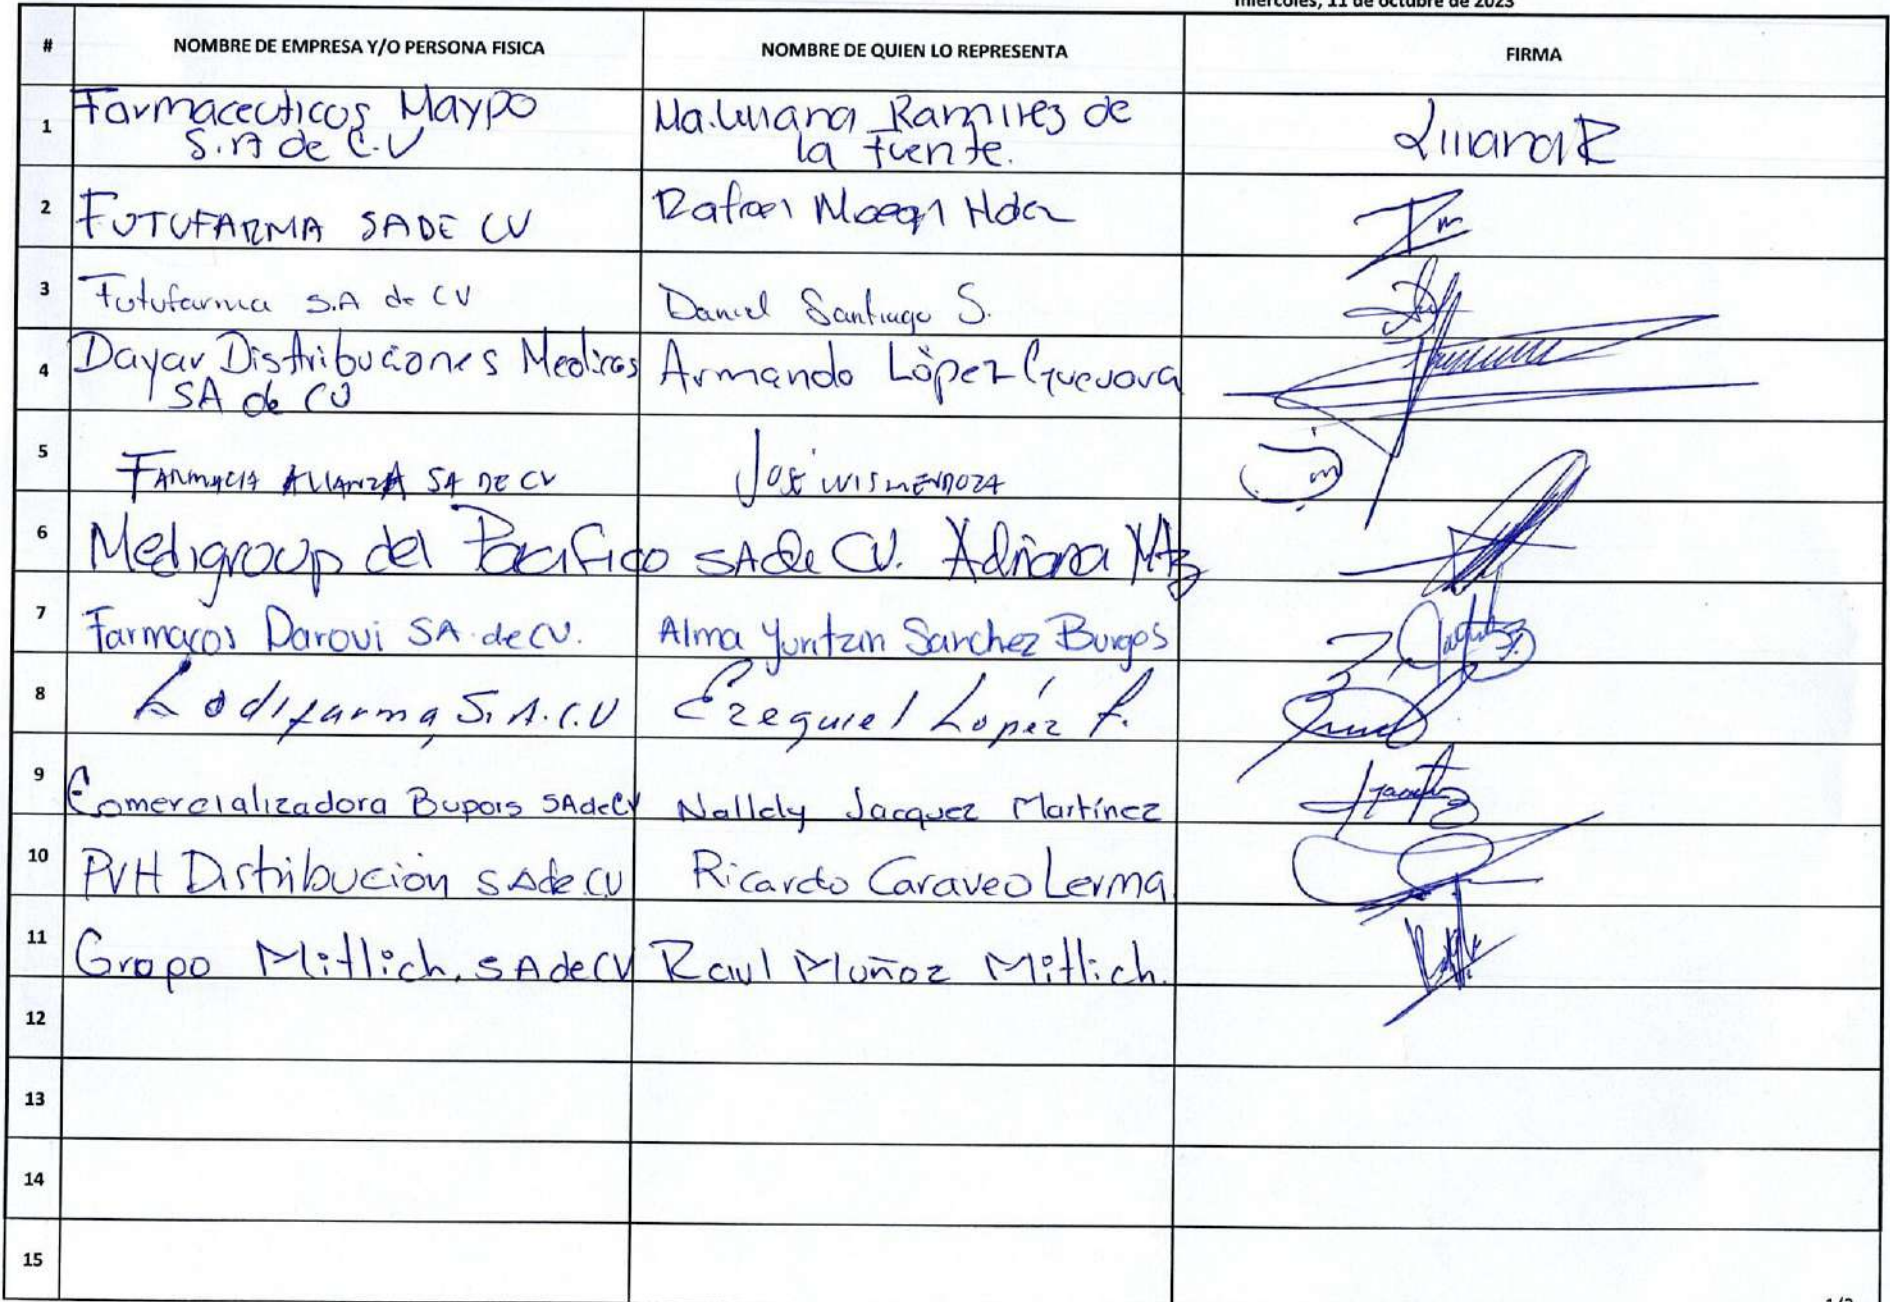 miércoles, 11 de octubre de 2023
# NOMBRE DE EMPRESA Y/O PERSONA FISICA NOMBRE DE QUIEN LO REPRESENTA FIRMA
1 Farmaceuticos Maypo Ma. Liliana Ramirez de LilianaR
S.A de C.V la fuente.
2 FUTUFARMA SA DE CV Rafael Hdez
3 Futufarma S.A de CV Daniel Santiago S.
4 Dayar Distribuciones Medicas Armando López Guevara
SA de CV
5 FARMACIA ALIANZA SA DE CV JOSÉ LUIS MENDOZA
6 Medigroup del Pacifico SA de CV. Adriana Mtz
7 Farmacos Darovi SA de CV. Alma Yuritzin Sanchez Burgos
8 Lodifarma, S.A.C.V Ezequiel López F.
9 Comercializadora Bupois SA de CV Nallely Jacquez Martínez
10 PVH Distribución SA de CV Ricardo Caraveo Lerma
11 Grupo Mitlich, SA de CV Raul Muñoz Mitlich.
12
13
14
15
1/2